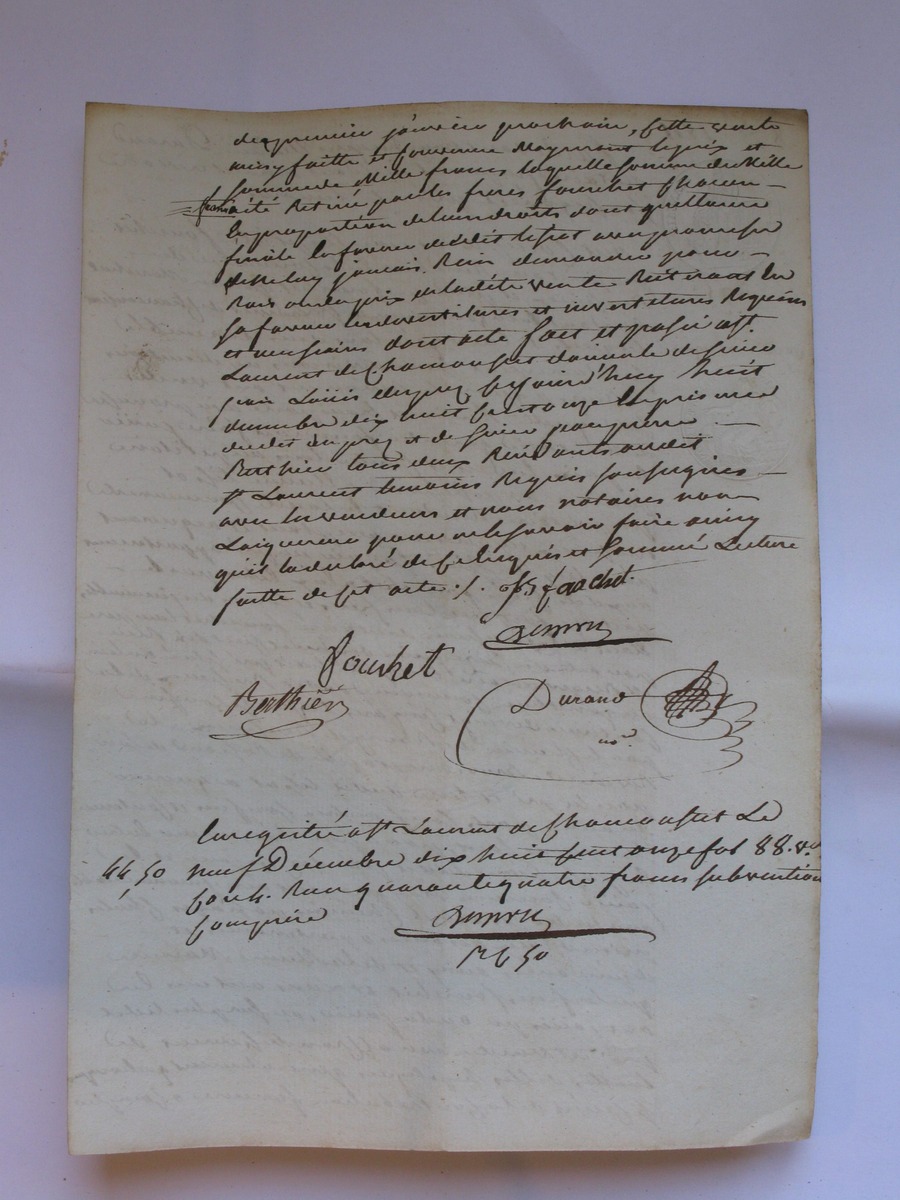 de premier janvier prochain, cette vente
ainsy faitte et convenue moyenant le prix et
somme de Mille francs laquelle somme de Mille
francs a été Retiré par les freres fourchet chacun
en proportion de leur droits dont quittance
finale en faveur dedit avec promesse
de ne luy jamais Rien demander pour
Rais en la ditte vente
sa faveur les devettitures et investitures Requises
et necessaires dont acte fait et passé a st
Laurent de chamousset domicile de sieur
jean Louis duprez ce jourd'huy huit
decembre dix huit cent onze en presence
dudit duprez et de sieur
Berthier tous deux Residants audit
st Laurent temoins Requis soussignés
avec les vendeurs et nous notaires non
l'aiquereur pour ne le savoir faire ainsy
qu'il la declaré de ce Enquis et sommé Lecture
faitte de cet acte ./.
Fourchet
Berthier
Durand
nre.
Enregistré a st Laurent de Chamousset Le
44,50 neuf Décembre dix huit cent onze fol 88. vo
quarante quatre francs subvention
comprise